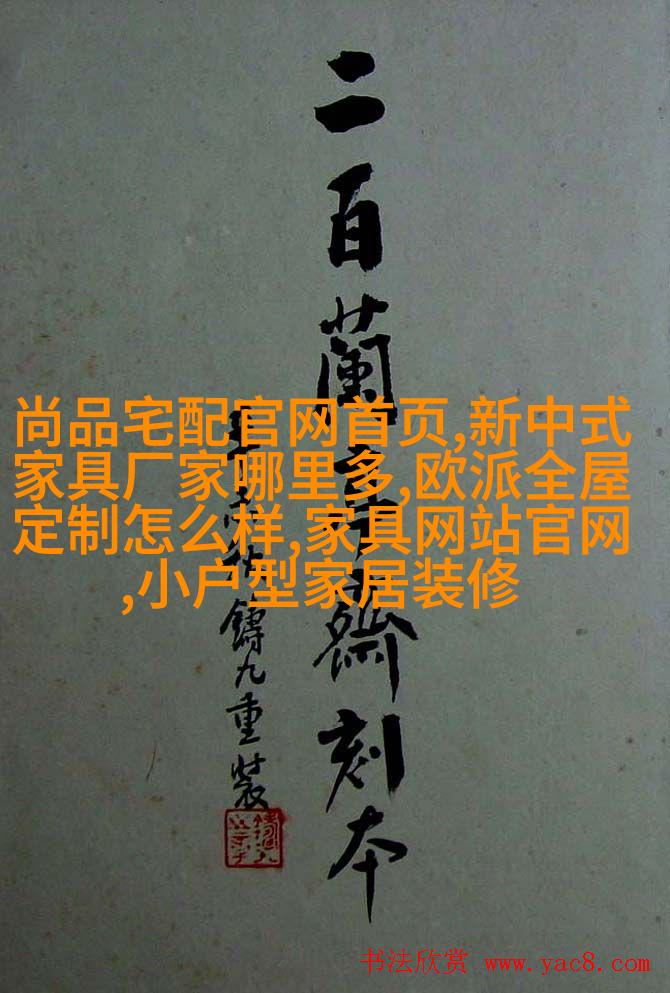 二百蘭亭齋刻本
鑄九重裝
尚品宅配官网首页,新中式
家具厂家哪里多,欧派全屋
定制怎么样,家具网站官网
,小户型家居装修
书法欣赏 www.yac8.com